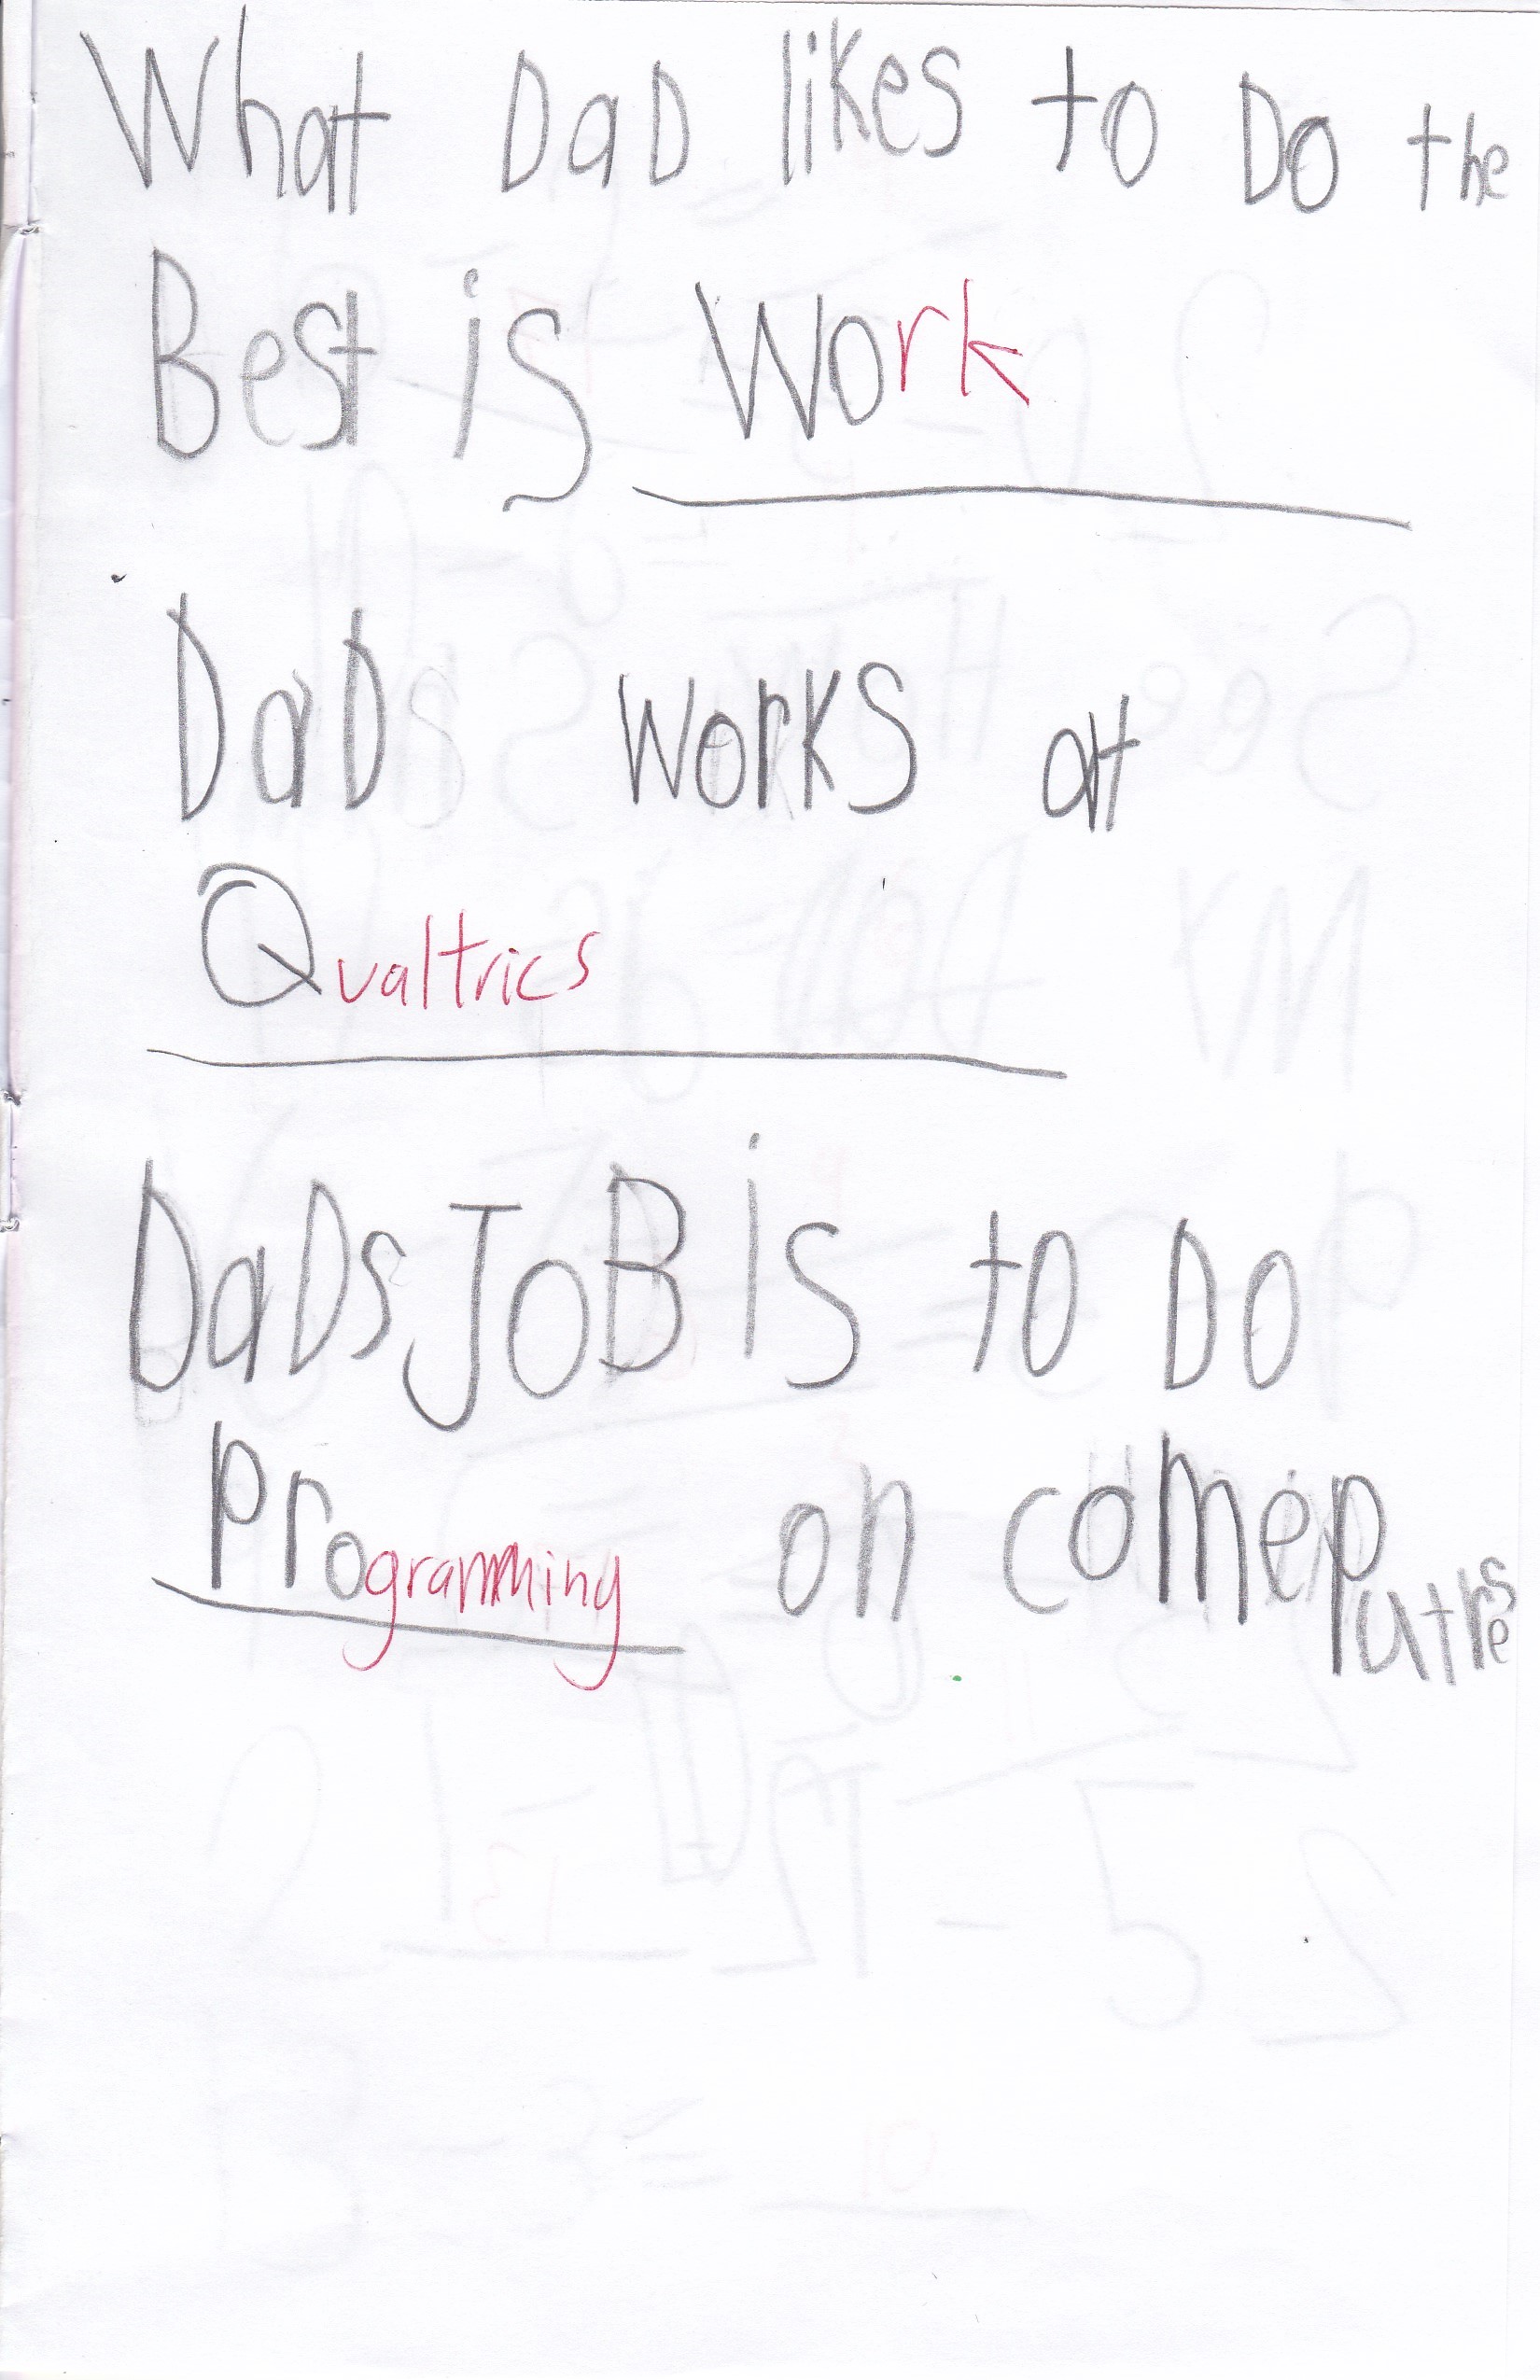 What DaD likes to Do the
Best is Work
DaD works at
Qualtrics
DaDs JoB is to DO
Programming on comeputres